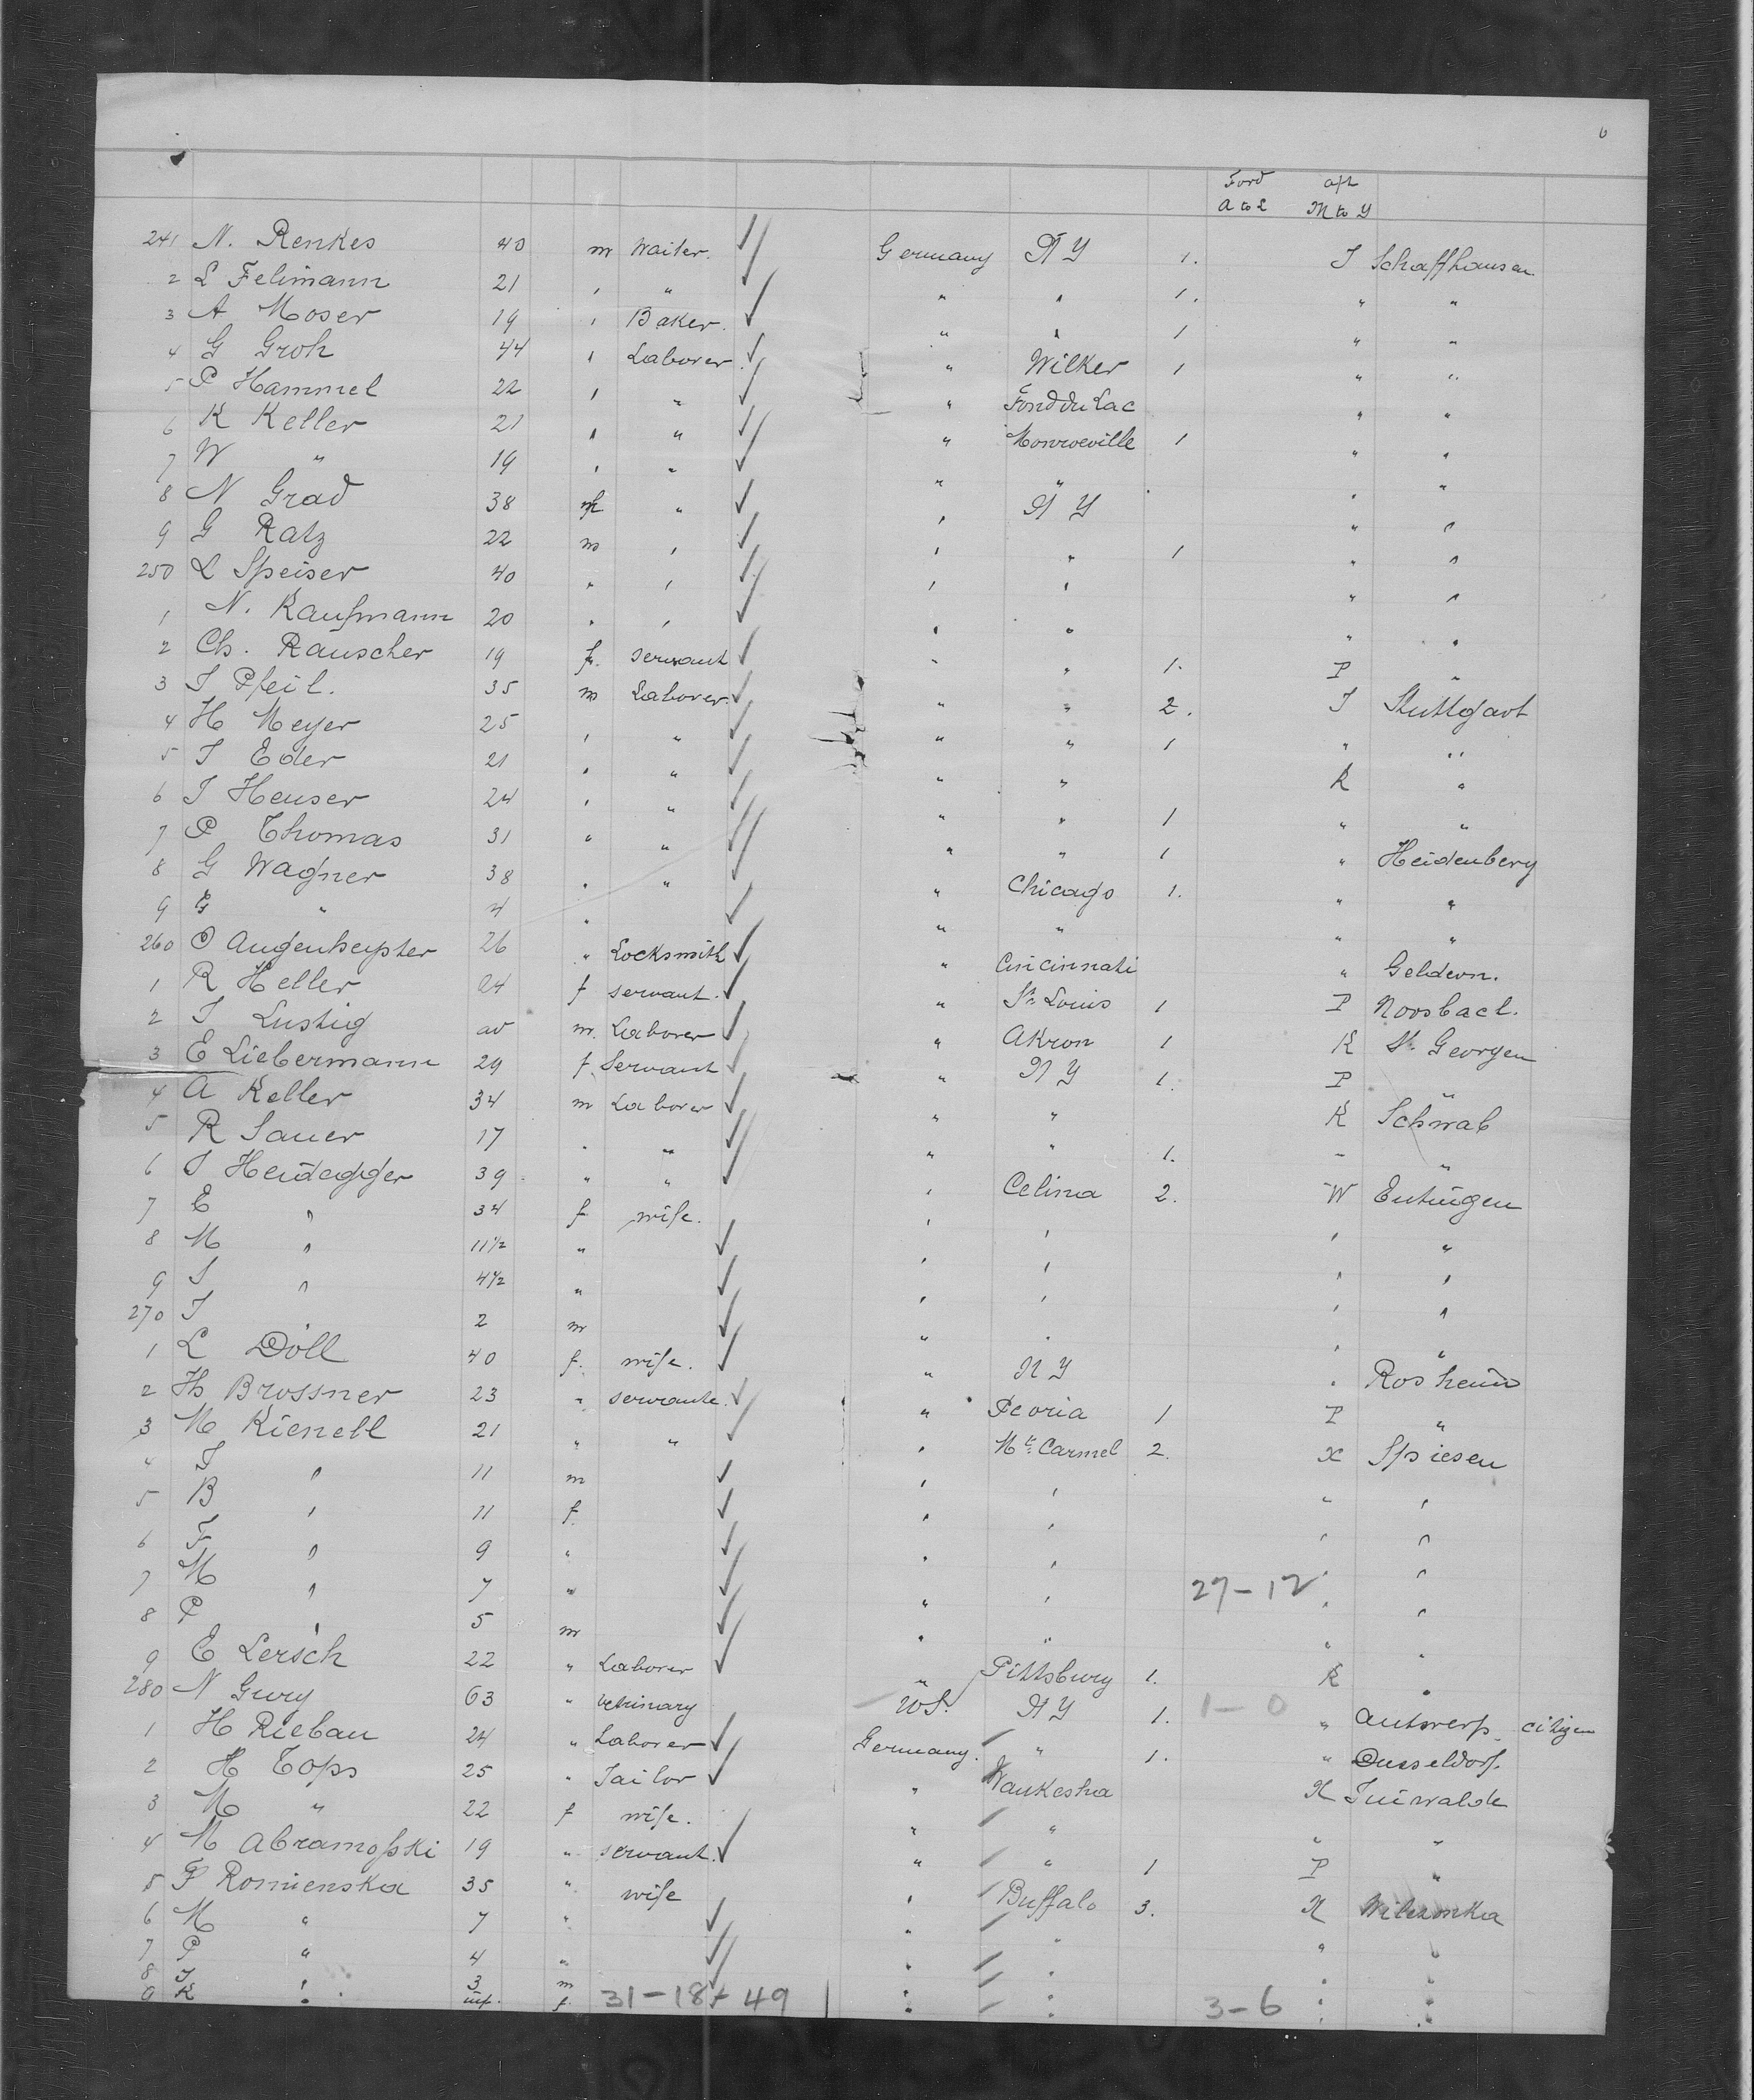 6
Ford aft
A to L M to Y
241 N. Renkes 40 m Waiter. Germany N Y 1. J Schaffhausen
2 L Felimann 21 " " " " 1. " "
3 A Moser 19 " Baker. " " 1 " "
4 G Groh 44 " Laborer " Wilker 1 " "
5 P Hammel 22 " " " Fond du Lac " "
6 K Keller 21 " " " Monroeville 1 " "
7 W " 19 " " " " " "
8 N Grad 38 " " N Y " "
9 G Ratz 22 m " " " 1 " "
250 L Speiser 40 " " " " " "
1 N. Kaufmann 20 " " " " " "
2 Ch. Rauscher 19 f. servant " " 1. P "
3 J Pfeil. 35 m Laborer. " " 2. J Stuttgart
4 H Meyer 25 " " " " 1 " "
5 J Eder 21 " " " " K "
6 J Heuser 24 " " " " 1 " "
7 P Thomas 31 " " " " 1 " Heidenberg
8 G Wagner 38 " " " Chicago 1. " "
9 G " 4 " " " " "
260 O 26 " Locksmith " Cincinnati " Geldern.
1 R Heller 24 f servant. " St Louis 1 P Moosbach.
2 J Lustig m. Laborer " Akron 1 K St. Georgen
3 E Liebermann 29 f. Servant " N Y 1. P "
4 A Keller 34 m Laborer " " K Schwab
5 R Sauer 17 " " " " 1. " "
6 J Heidegger 39 " " " Celina 2. W Entingen
7 E " 34 f wife. " " " "
8 M " 11½ " " " " "
9 S " 4½ " " " " "
270 J 2 m " " " "
1 L Döll 40 f. wife. " N Y " Rosheim
2 Th Brossner 23 " servante " Peoria 1 P "
3 M Kienell 21 " " " Mt. Carmel 2. X Spiesen
4 J " 11 m " " " "
5 B " 11 f. " " " "
6 F " 9 " " " " "
7 M " 7 " " " 27-12 " "
8 P " 5 m " " " "
9 E Lersch 22 " Laborer " Pittsburg 1. K "
280 N Gury 63 " vetrinary US. N Y 1. 1-0 " Antwerp. citizen
1 H Rieban 24 " Laborer Germany. " 1. " Dusseldorf.
2 H Tops 25 " Tailor " Waukesha X
3 M " 22 f wife. " " " "
4 M Abramofski 19 " servant. " " 1 P "
5 F Romienska 35 " wife " Buffalo 3. X
6 M " 7 " " " " "
7 P " 4 " " " " "
8 J " 3 m " " " "
9 K " inf. f. 31-18+49 " " 3-6 " "